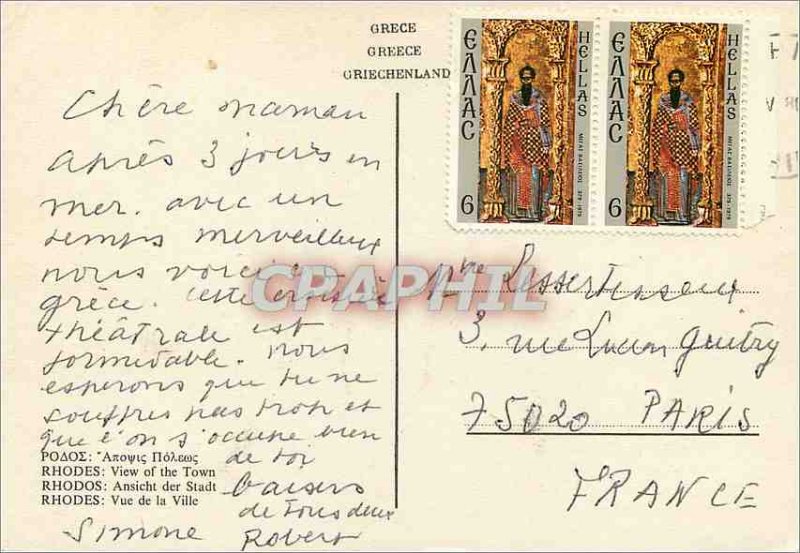 GRECE
GREECE
GRIECHENLAND
ΕΛΛΑΣ
HELLAS
ΜΕΓΑΣ ΒΑΣΙΛΕΙΟΣ 379-1979
6
ΕΛΛΑΣ
HELLAS
ΜΕΓΑΣ ΒΑΣΙΛΕΙΟΣ 379-1979
6
Chère maman
après 3 jours en
mer. avec un
temps merveilleux
nous voici en
grèce. cette croisière
théâtrale est
formidable. nous
esperons que tu ne
souffres pas trop et
que l'on s'occupe bien
de toi
baisers
de tous deux
Simone Robert
ΡΟΔΟΣ: Ἄποψις Πόλεως
RHODES: View of the Town
RHODOS: Ansicht der Stadt
RHODES: Vue de la Ville
CPAPHIL
Mme
3, rue Lucien Guitry
75020 PARIS
FRANCE